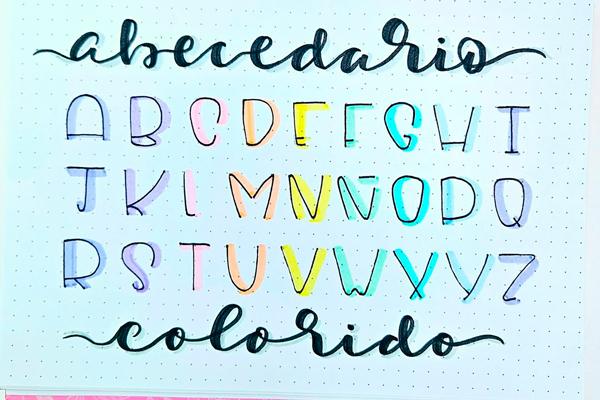 abecedario
A B C D E F G H I
J K L M N Ñ O P Q
R S T U V W X Y Z
colorido